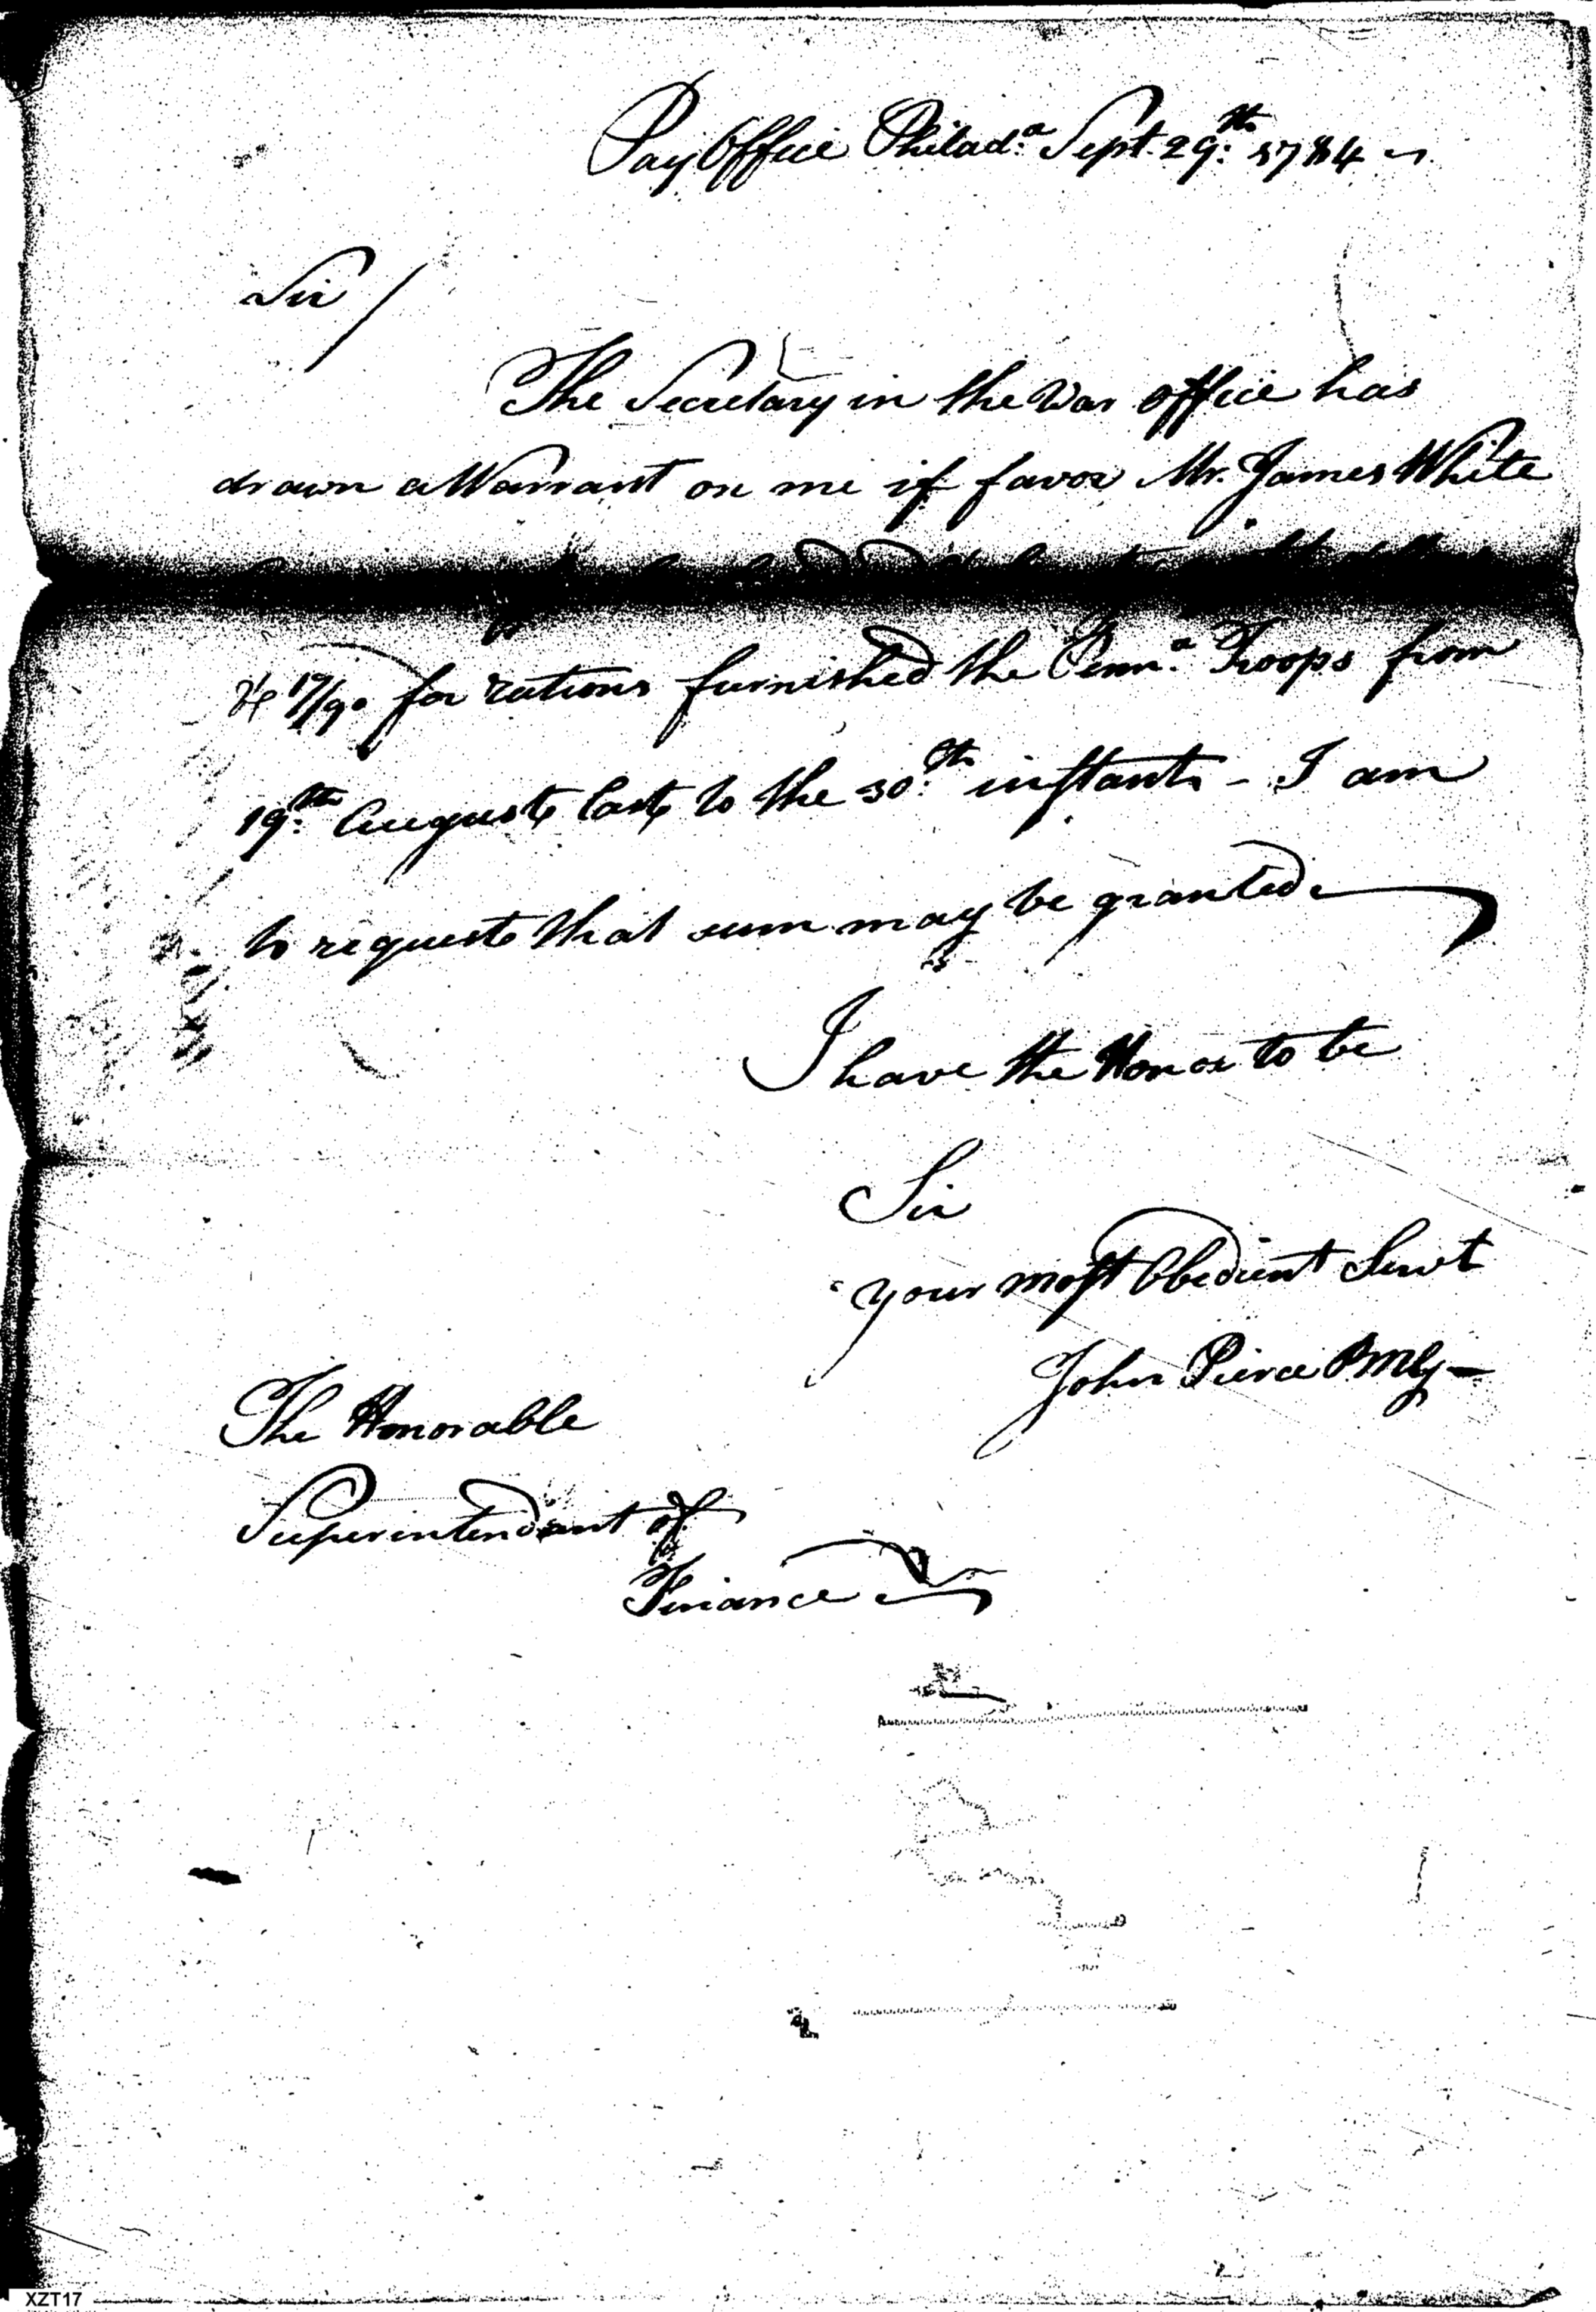 Pay Office Philad.a Sept. 29.th 1784
Sir /
The Secretary in the War office has
drawn a Warrant on me if favor Mr. James White
17/90 for rations furnished the Penn.a Troops from
19.th August last to the 30.th instant - I am
to request that sum may be granted.
I have the Honor to be
Sir
your most Obedient Servt
John Pierce PMG
The Honorable
Superintendant of
Finance
XZT17